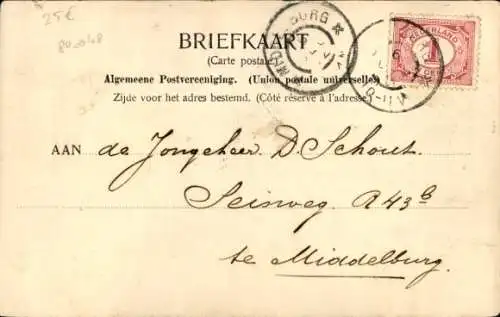 25€
BRIEFKAART
(Carte postale)
Algemeene Postvereeniging. (Union postale universelle)
Zijde voor het adres bestemd. (Côté réservé à l'adresse)
NEDERLAND
1
AAN de Jongeheer D. Schout.
Seisweg A 43 b
te Middelburg.